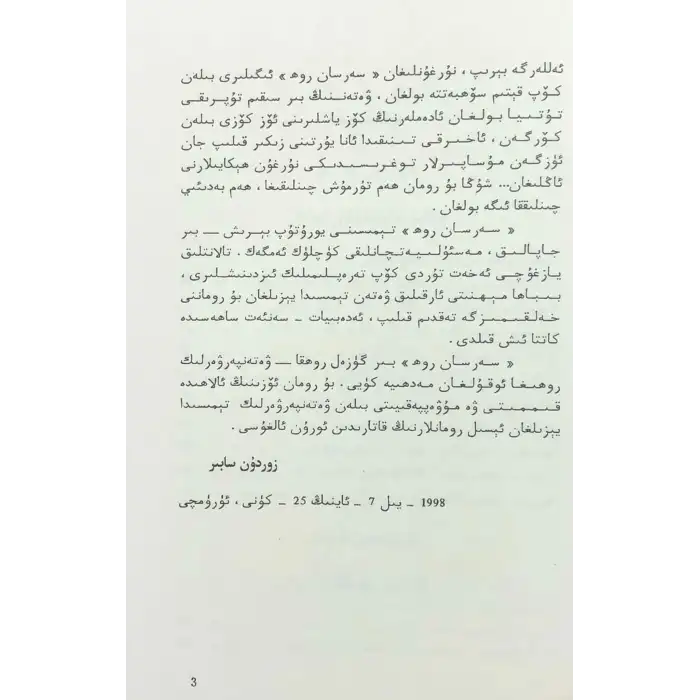 ئەللەرگە بېرىپ ، نۇرغۇنلىغان « سەرسان روھ » ئىگىلىرى بىلەن
كۆپ قېتىم سۆھبەتتە بولغان ، ۋەتەننىڭ بىر سىقىم تۇپرىقى
تۇتىيا بولغان ئادەملەرنىڭ كۆز ياشلىرىنى ئۆز كۆزى بىلەن
كۆرگەن ، ئاخىرقى تىنىقىدا ئانا يۇرتىنى زىكىر قىلىپ جان
ئۈزگەن مۇساپىرلار توغرىسىدىكى نۇرغۇن ھېكايىلارنى
ئاڭلىغان... شۇڭا بۇ رومان ھەم تۇرمۇش چىنلىقىغا ، ھەم بەدىئىي
چىنلىققا ئىگە بولغان .
« سەرسان روھ » تېمىسىنى يورۇتۇپ بېرىش — بىر
جاپالىق ، مەسئۇلىيەتچانلىقى كۈچلۈك ئەمگەك . تالانتلىق
يازغۇچى ئەخەت تۇردى كۆپ تەرەپلىمىلىك ئىزدىنىشلىرى ،
بىباھا مېھنىتى ئارقىلىق ۋەتەن تېمىسىدا يېزىلغان بۇ روماننى
خەلقىمىزگە تەقدىم قىلىپ ، ئەدەبىيات - سەنئەت ساھەسىدە
كاتتا ئىش قىلدى .
« سەرسان روھ » بىر گۈزەل روھقا — ۋەتەنپەرۋەرلىك
روھىغا ئوقۇلغان مەدھىيە كۈيى . بۇ رومان ئۆزىنىڭ ئالاھىدە
قىممىتى ۋە مۇۋەپپەقىيىتى بىلەن ۋەتەنپەرۋەرلىك تېمىسىدا
يېزىلغان ئېسىل رومانلارنىڭ قاتارىدىن ئورۇن ئالغۇسى .
زوردۇن سابىر
1998 - يىل 7 - ئاينىڭ 25 - كۈنى ، ئۈرۈمچى
3